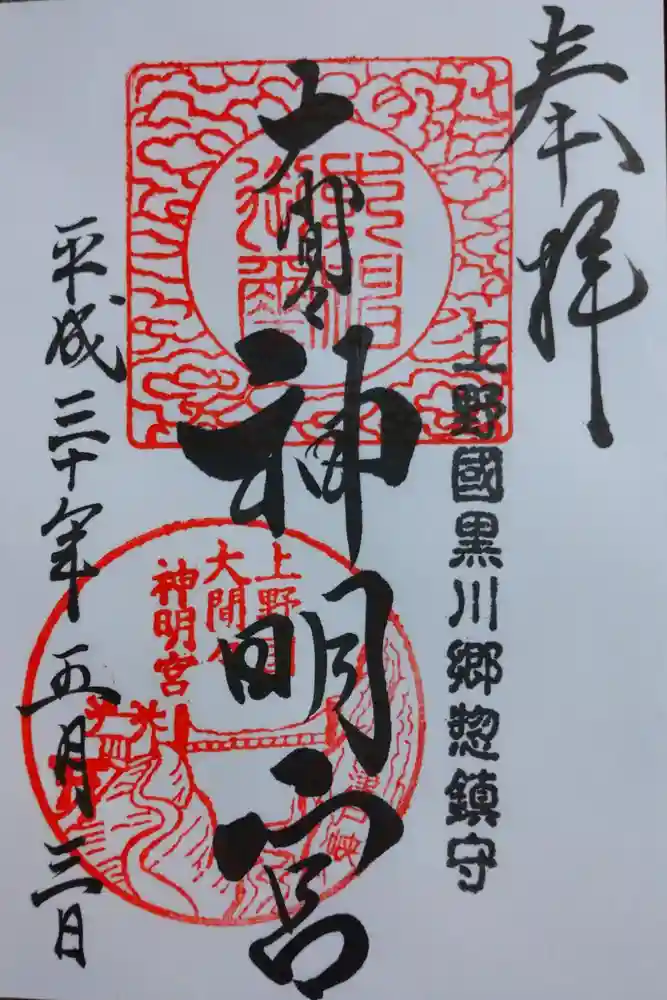 奉拝
上野國黒川郷惣鎮守
大間々
神明宮
平成三十年五月三日
上野國
大間々
神明宮